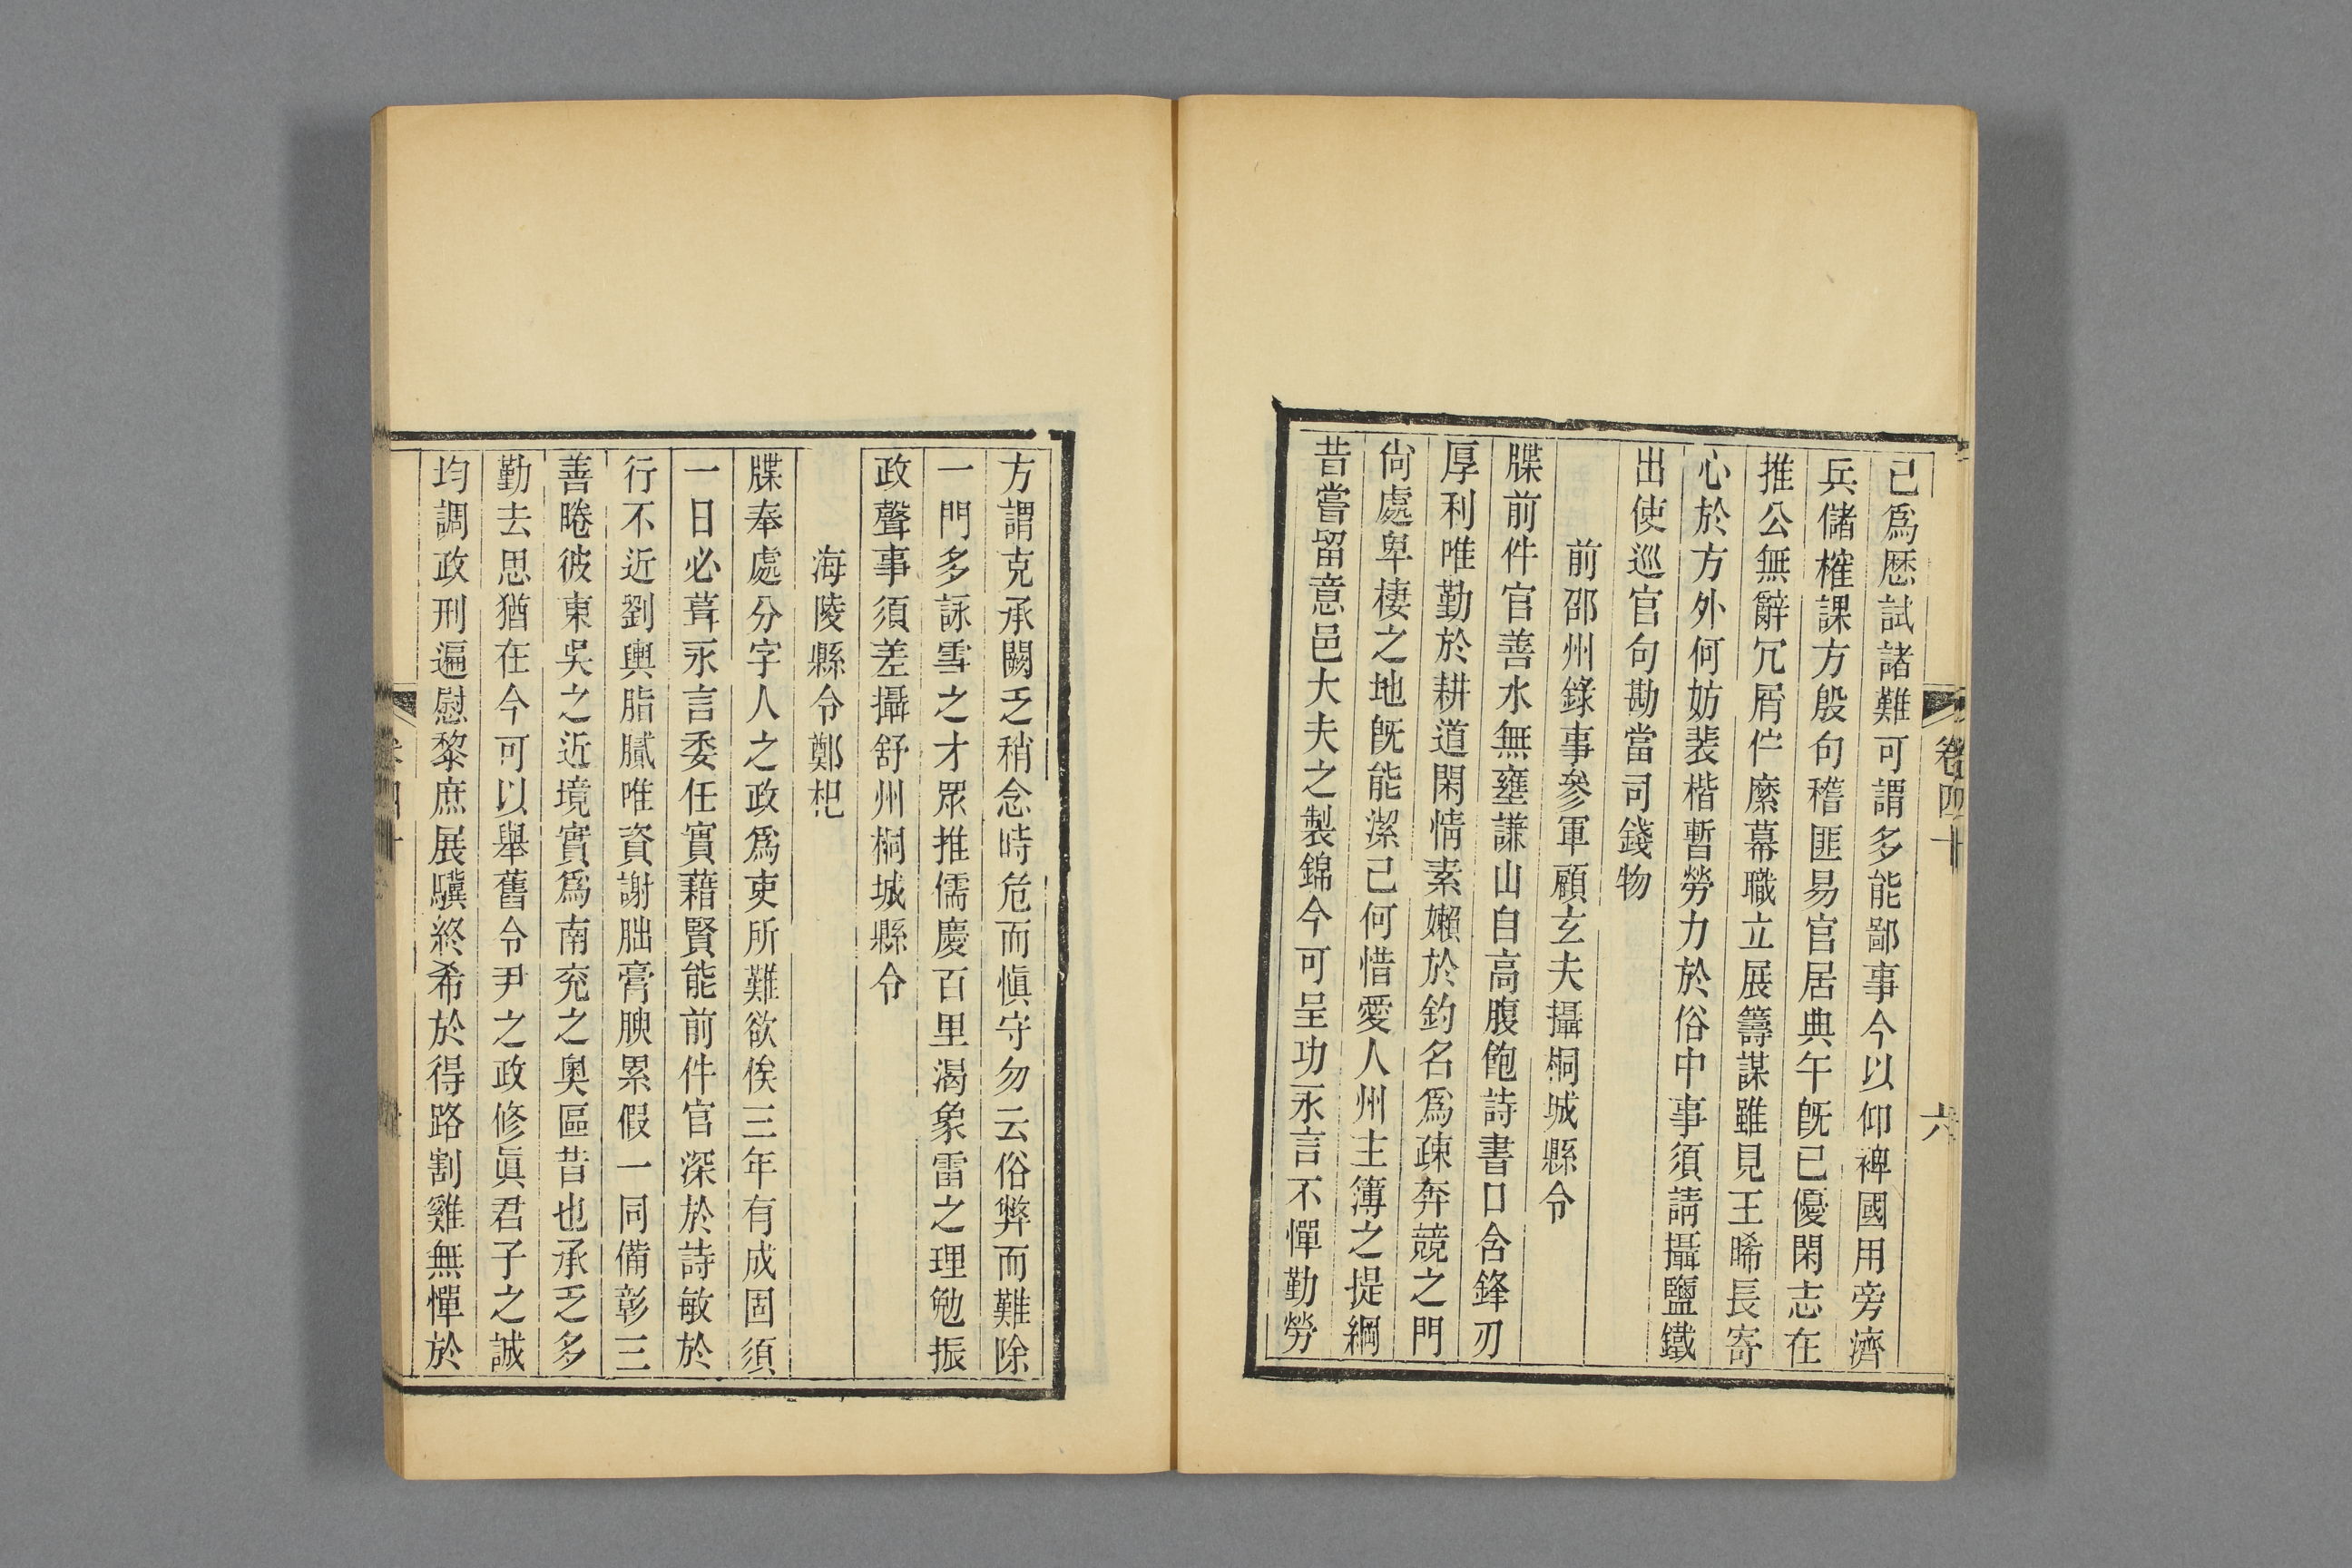 卷四十
六
已爲歷試諸難可謂多能鄙事今以仰裨國用旁濟
兵儲榷課方殷句稽匪易官居典午旣已優閑志在
推公無辭冗屑伫縻幕職立展籌謀雖見王睎長寄
心於方外何妨裴楷暫勞力於俗中事須請攝鹽鐵
出使巡官句勘當司錢物
前邵州錄事參軍顧玄夫攝桐城縣令
牒前件官善水無壅謙山自高腹飽詩書口含鋒刃
厚利唯勤於耕道閑情素嬾於釣名爲疎奔競之門
尙處卑棲之地旣能潔己何惜愛人州主簿之提綱
昔嘗留意邑大夫之製錦今可呈功永言不憚勤勞
方謂克承闕乏稍念時危而愼守勿云俗弊而難除
一門多詠雪之才眾推儒慶百里渴象雷之理勉振
政聲事須差攝舒州桐城縣令
海陵縣令鄭杞
牒奉處分字人之政爲吏所難欲俟三年有成固須
一日必葺永言委任實藉賢能前件官深於詩敏於
行不近劉輿脂膩唯資謝朏膏腴累假一同備彰三
善睠彼東吳之近境實爲南兖之奧區昔也承乏多
勤去思猶在今可以舉舊令尹之政修眞君子之誠
均調政刑遍慰黎庶展驥終希於得路割雞無憚於